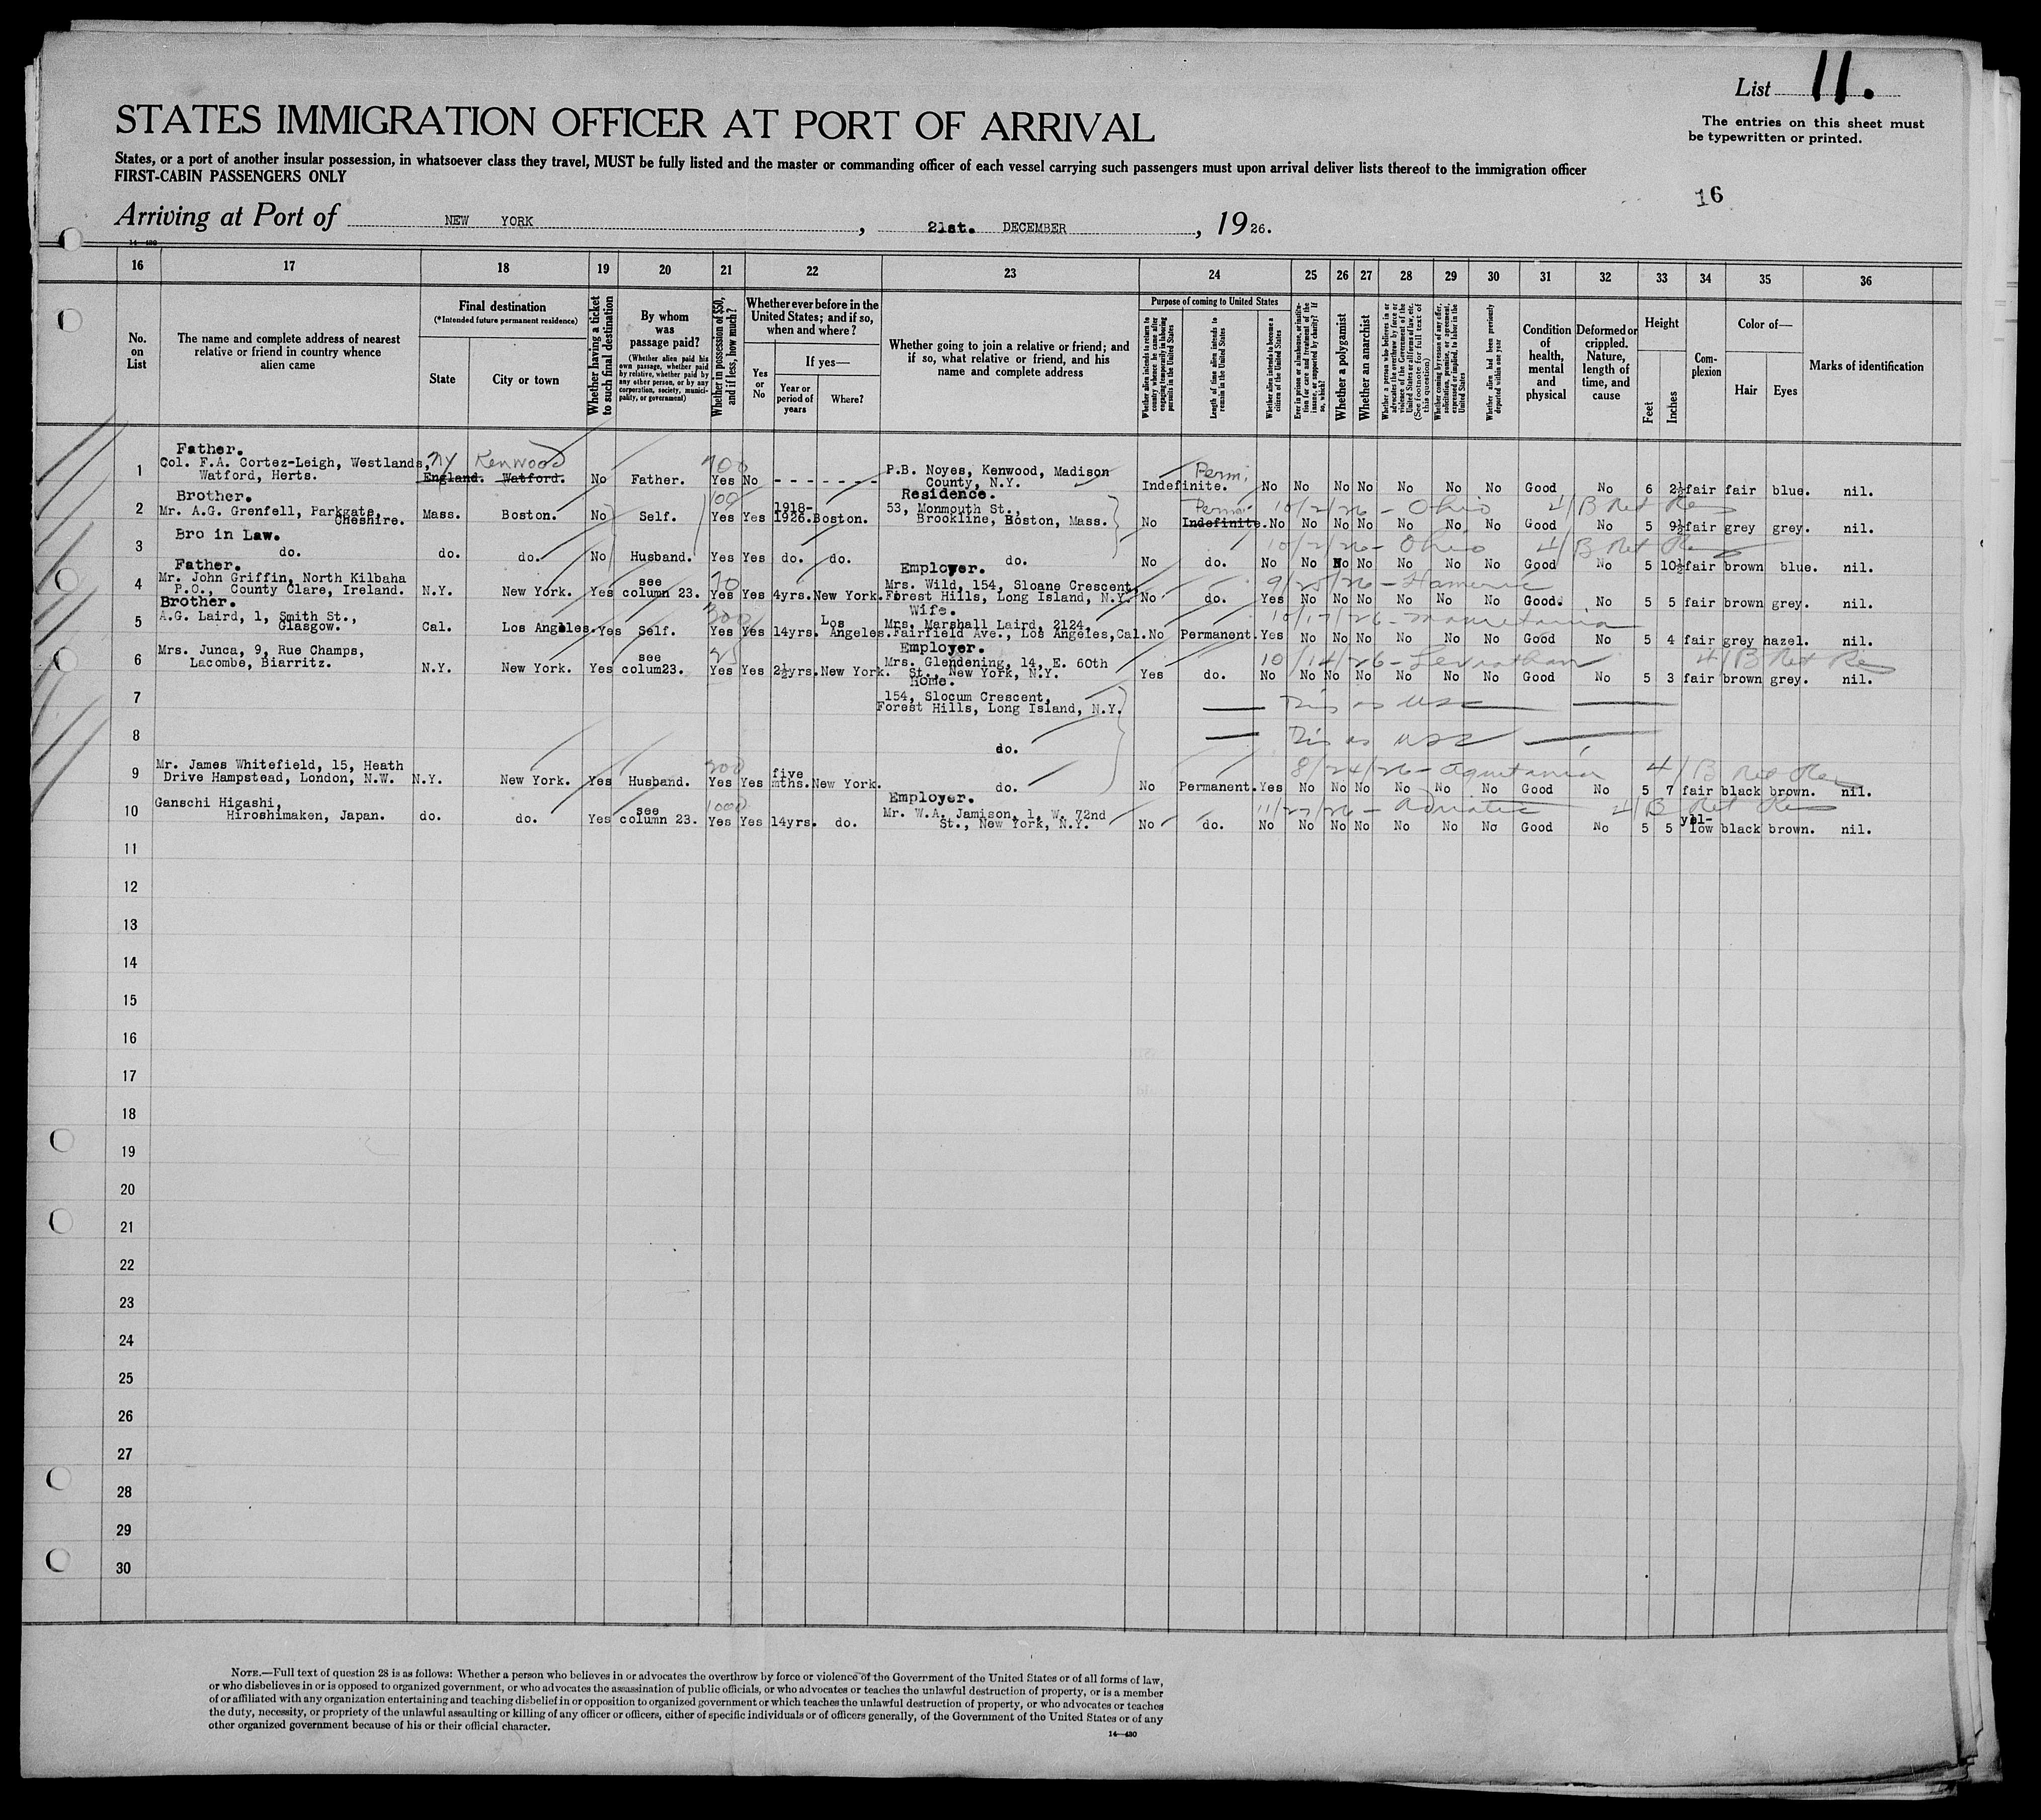 List 11.
STATES IMMIGRATION OFFICER AT PORT OF ARRIVAL
The entries on this sheet must
be typewritten or printed.
States, or a port of another insular possession, in whatsoever class they travel, MUST be fully listed and the master or commanding officer of each vessel carrying such passengers must upon arrival deliver lists thereof to the immigration officer
FIRST-CABIN PASSENGERS ONLY
16
Arriving at Port of NEW YORK, 21st. DECEMBER, 1926.
14—430
16 17 18 19 20 21 22 23 24 25 26 27 28 29 30 31 32 33 34 35 36
No. on List
The name and complete address of nearest relative or friend in country whence alien came
Final destination
(*Intended future permanent residence)
State
City or town
Whether having a ticket to such final destination
By whom was passage paid?
(Whether alien paid his own passage, whether paid by relative, whether paid by any other person, or by any corporation, society, municipality, or government)
Whether in possession of $50, and if less, how much?
Whether ever before in the United States; and if so, when and where?
Yes or No
If yes—
Year or period of years
Where?
Whether going to join a relative or friend; and if so, what relative or friend, and his name and complete address
Purpose of coming to United States
Whether alien intends to return to country whence he came after engaging temporarily in laboring pursuits in the United States
Length of time alien intends to remain in the United States
Whether alien intends to become a citizen of the United States
Ever in prison or almshouse, or institution for care and treatment of the insane, or supported by charity? If so, which?
Whether a polygamist
Whether an anarchist
Whether a person who believes in or advocates the overthrow by force or violence of the Government of the United States or all forms of law, etc. (See footnote for full text of this question)
Whether coming by reason of any offer, solicitation, promise, or agreement, expressed or implied, to labor in the United States
Whether alien had been previously deported within one year
Condition of health, mental and physical
Deformed or crippled. Nature, length of time, and cause
Height
Feet
Inches
Complexion
Color of—
Hair
Eyes
Marks of identification
Father.
1 Col. F.A. Cortez-Leigh, Westlands, Watford, Herts. NY Kenwood England. Watford. No Father. 700 Yes No - - - - - - - P.B. Noyes, Kenwood, Madison County, N.Y. Perm. Indefinite. No No No No No No No Good No 6 2½ fair fair blue. nil.
Brother. Residence.
2 Mr. A.G. Grenfell, Parkgate, Cheshire. Mass. Boston. No Self. 100 Yes Yes 1918-1926. Boston. 53, Monmouth St., Brookline, Boston, Mass. No Perm. Indefinite. No No No No No No No Good No 5 9½ fair grey grey. nil.
10/2/26 - Ohio 4/B Ret
Bro in Law.
3 do. do. do. No Husband. Yes Yes do. do. do. No do. No No No No No No No Good No 5 10½ fair brown blue. nil.
10/2/26 - Ohio 4/B Ret
Father. Employer.
4 Mr. John Griffin, North Kilbaha P.O., County Clare, Ireland. N.Y. New York. Yes see column 23. 70 Yes Yes 4yrs. New York. Mrs. Wild, 154, Sloane Crescent, Forest Hills, Long Island, N.Y. No do. Yes No No No No No No Good. No 5 5 fair brown grey. nil.
Brother. Wife.
5 A.G. Laird, 1, Smith St., Glasgow. Cal. Los Angeles. Yes Self. 300 Yes Yes 14yrs. Los Angeles. Mrs. Marshall Laird, 2124, Fairfield Ave., Los Angeles, Cal. No Permanent. Yes No No No No No No Good No 5 4 fair grey hazel. nil.
10/17/26 - Mauretania
Employer.
6 Mrs. Junca, 9, Rue Champs, Lacombe, Biarritz. N.Y. New York. Yes see colum23. 25 Yes Yes 2½yrs. New York. Mrs. Glendening, 14, E. 60th St., New York, N.Y. Yes do. No No No No No No No Good No 5 3 fair brown grey. nil.
10/14/26 - Leviathan 4/B Ret
Home.
7 154, Slocum Crescent, Forest Hills, Long Island, N.Y.
8 do.
9 Mr. James Whitefield, 15, Heath Drive Hampstead, London, N.W. N.Y. New York. Yes Husband. 200 Yes Yes five mths. New York. do. No Permanent. Yes No No No No No No Good No 5 7 fair black brown. nil.
8/24/26 - Aquitania 4/B Ret
Employer.
10 Ganschi Higashi, Hiroshimaken, Japan. do. do. Yes see column 23. 1000 Yes Yes 14yrs. do. Mr. W.A. Jamison, 1, W. 72nd St., New York, N.Y. No do. No No No No No No No Good No 5 5 yel-low black brown. nil.
11/27/26 - Adriatic 4/B Ret
11
12
13
14
15
16
17
18
19
20
21
22
23
24
25
26
27
28
29
30
NOTE.—Full text of question 28 is as follows: Whether a person who believes in or advocates the overthrow by force or violence of the Government of the United States or of all forms of law,
or who disbelieves in or is opposed to organized government, or who advocates the assassination of public officials, or who advocates or teaches the unlawful destruction of property, or is a member
of or affiliated with any organization entertaining and teaching disbelief in or opposition to organized government or which teaches the unlawful destruction of property, or who advocates or teaches
the duty, necessity, or propriety of the unlawful assaulting or killing of any officer or officers, either of specific individuals or of officers generally, of the Government of the United States or of any
other organized government because of his or their official character.
14—430